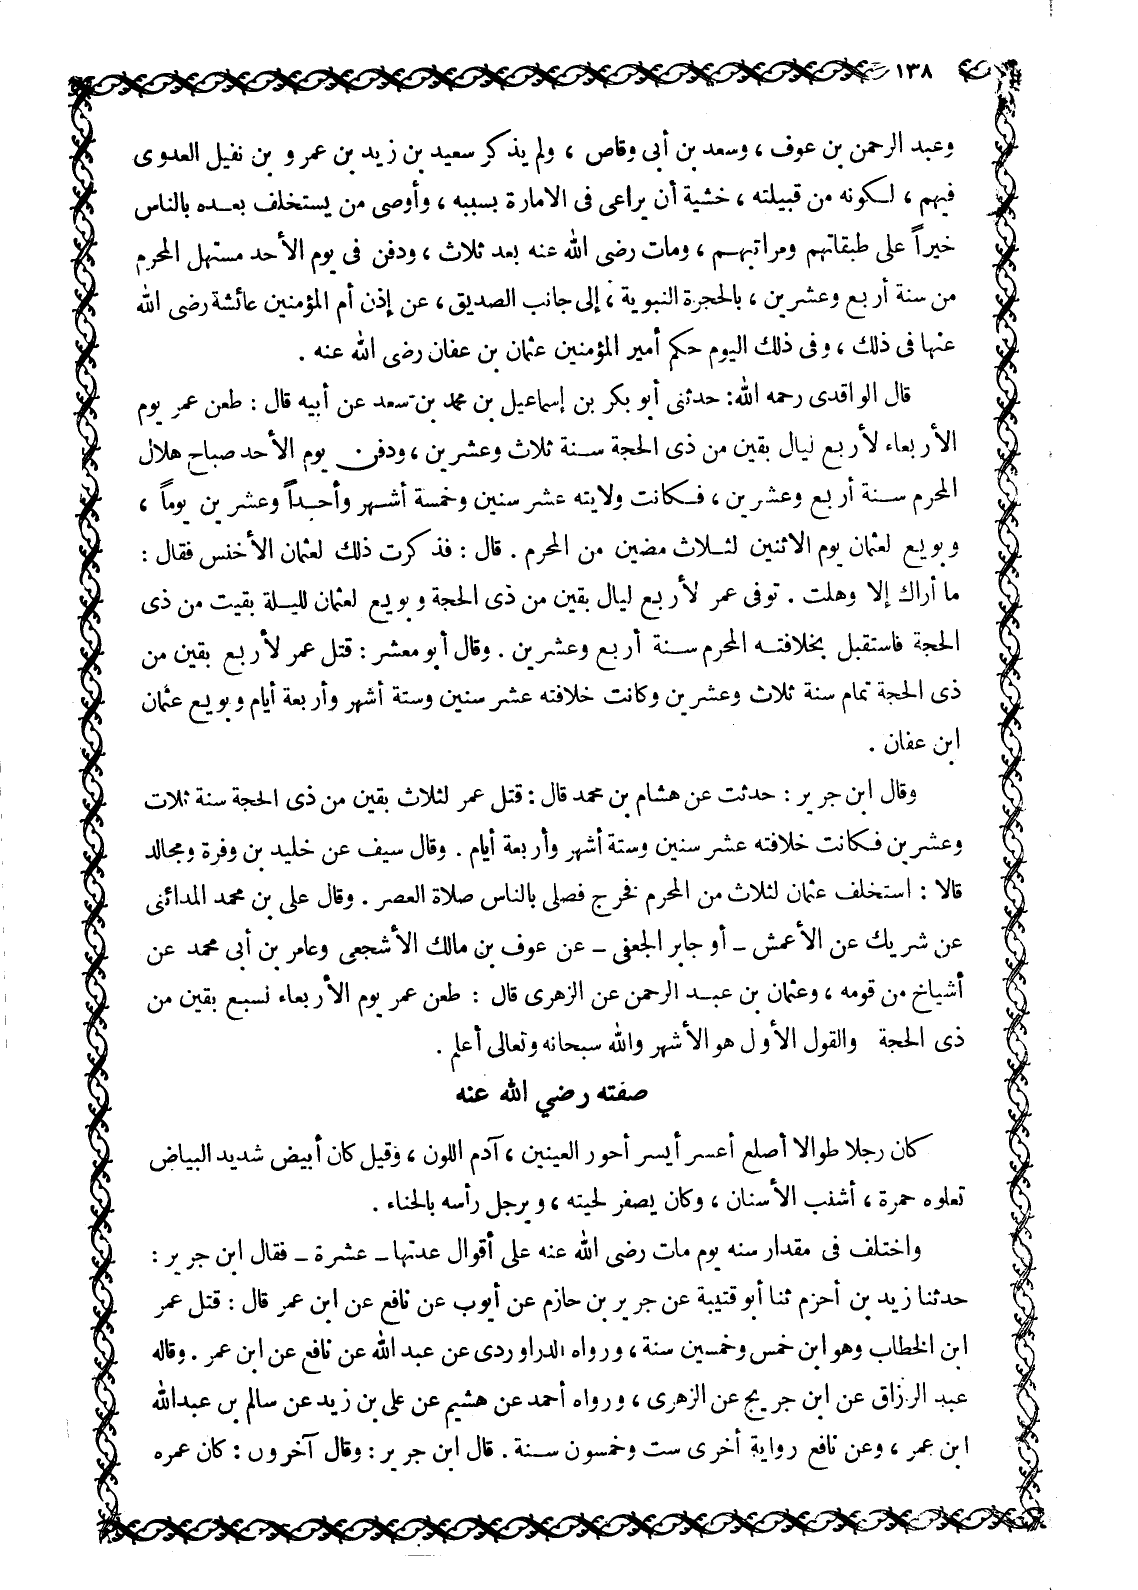 ١٣٨
وعبد الرحمن بن عوف ، وسعد بن أبى وقاص ، ولم يذكر سعيد بن زيد بن عمرو بن نفيل العدوى
فيهم ، لكونه من قبيلته ، خشية أن يراعى فى الامارة بسببه ، وأوصى من يستخلف بعده بالناس
خيراً على طبقاتهم ومراتبهم ، ومات رضى الله عنه بعد ثلاث ، ودفن فى يوم الأحد مستهل المحرم
من سنة أربع وعشرين ، بالحجرة النبوية ، إلى جانب الصديق ، عن إذن أم المؤمنين عائشة رضى الله
عنها فى ذلك ، وفى ذلك اليوم حكم أمير المؤمنين عثمان بن عفان رضى الله عنه .
قال الواقدى رحمه الله : حدثنى أبو بكر بن إسماعيل بن محمد بن سعد عن أبيه قال : طعن عمر يوم
الأربعاء لأربع ليال بقين من ذى الحجة سنة ثلاث وعشرين ، ودفن يوم الأحد صباح هلال
المحرم سنة أربع وعشرين ، فكانت ولايته عشر سنين وخمسة أشهر وأحداً وعشرين يوماً ،
وبويع لعثمان يوم الاثنين لثلاث مضين من المحرم . قال : فذكرت ذلك لعثمان الأخنس فقال :
ما أراك إلا وهلت . توفى عمر لأربع ليال بقين من ذى الحجة وبويع لعثمان لليلة بقيت من ذى
الحجة فاستقبل بخلافته المحرم سنة أربع وعشرين . وقال أبو معشر : قتل عمر لأربع بقين من
ذى الحجة تمام سنة ثلاث وعشرين وكانت خلافته عشر سنين وستة أشهر وأربعة أيام وبويع عثمان
ابن عفان .
وقال ابن جرير : حدثت عن هشام بن محمد قال : قتل عمر لثلاث بقين من ذى الحجة سنة ثلاث
وعشرين فكانت خلافته عشر سنين وستة أشهر وأربعة أيام . وقال سيف عن خليد بن وفرة ومجالد
قالا : استخلف عثمان لثلاث من المحرم فخرج فصلى بالناس صلاة العصر . وقال على بن محمد المدائنى
عن شريك عن الأعمش ـ أو جابر الجعفى ـ عن عوف بن مالك الأشجعى وعامر بن أبى محمد عن
أشياخ من قومه ، وعثمان بن عبد الرحمن عن الزهرى قال : طعن عمر يوم الأربعاء لسبع بقين من
ذى الحجة والقول الأول هو الأشهر والله سبحانه وتعالى أعلم .
صفته رضي الله عنه
كان رجلا طوالا أصلع أعسر أيسر أحور العينين ، آدم اللون ، وقيل كان أبيض شديد البياض
تعلوه حمرة ، أشنب الأسنان ، وكان يصفر لحيته ، ويرجل رأسه بالحناء .
واختلف فى مقدار سنه يوم مات رضى الله عنه على أقوال عدتها ـ عشرة ـ فقال ابن جرير :
حدثنا زيد بن أحزم ثنا أبو قتيبة عن جرير بن حازم عن أيوب عن نافع عن ابن عمر قال : قتل عمر
ابن الخطاب وهو ابن خمس وخمسين سنة ، ورواه الدراوردى عن عبد الله عن نافع عن ابن عمر . وقاله
عبد الرزاق عن ابن جريج عن الزهرى ، ورواه أحمد عن هشيم عن على بن زيد عن سالم بن عبدالله
ابن عمر ، وعن نافع رواية أخرى ست وخمسون سنة . قال ابن جرير : وقال آخرون : كان عمره